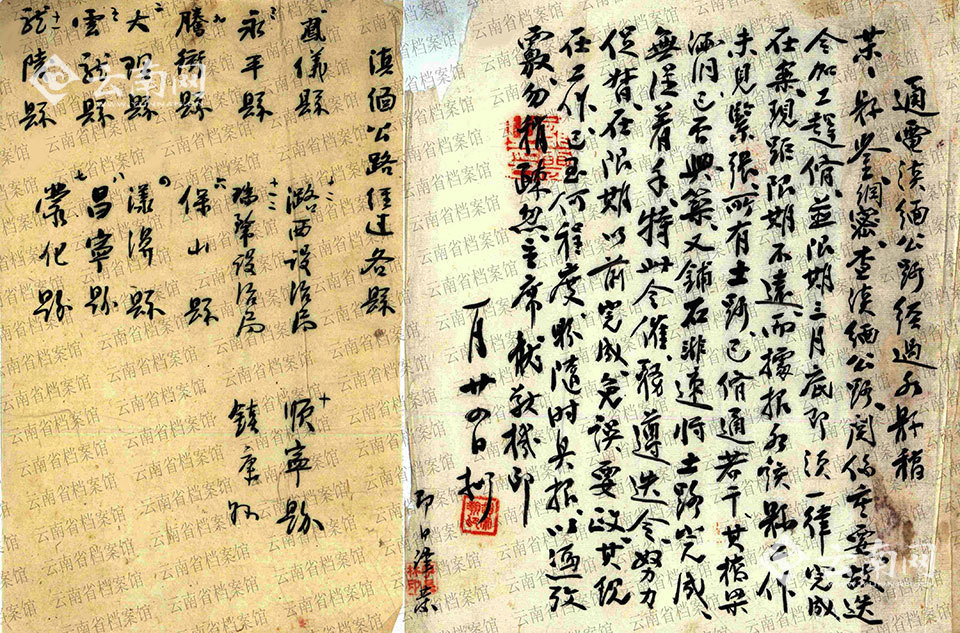 通電滇緬公路經過各縣稿
縣鑒綢密查滇緬公路關係重要迭
令加工趕修並限期三月底即須一律完成
在案現距限期不遠而據報各該縣工作
未見緊張所有土路已修通若干其橋梁
涵洞已否興築又鋪石非速將土路完成
無從着手特此令催務遵迭令努力
促督在限期以前完成免誤要政其現
在工作已至何程度隨時具報以憑考
覈勿稍疎忽主席機印
一月廿四日
即日譯發
滇緬公路經過各縣
鳳儀縣 潞西設治局 順寧縣
永平縣 瑞麗設治局 鎮康縣
騰衝縣 保山縣
大理縣 漾濞縣
雲龍縣 昌寧縣
龍陵縣 蒙化縣
云南网
云南网
YUNNAN.CN
云南省档案馆